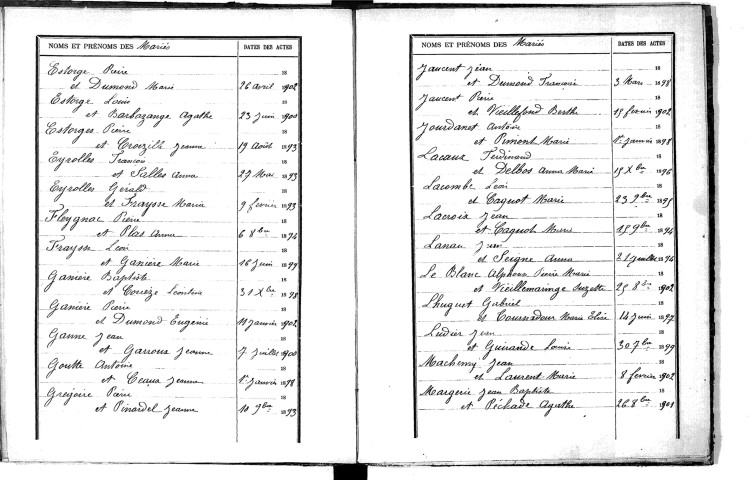 NOMS ET PRÉNOMS DES Mariés DATES DES ACTES
Estorge Pierre 18
et Dumond Marie 26 avril 1902
Estorge Louis 18
et Barbazange Agathe 23 juin 1900
Estorges Pierre 18
et Crozille Jeanne 19 Août 1893
Eyrolles François 18
et Salles Anna 27 Mai 1893
Eyrolles Gérald 18
et Fraysse Maria 9 février 1893
Fleygnac Pierre 18
et Plas Anna 6 8bre 1894
Fraysse Léon 18
et Ganière Marie 16 juin 1899
Ganière Baptiste 18
et Corrèze Léontine 31 Xbre 1898
Ganière Pierre 18
et Dumond Eugénie 11 janvier 1902
Ganne Jean 18
et Garroux Jeanne 7 juillet 1900
Goutte Antoine 18
et Ceaux Jeanne 1er janvier 1898
Grégoire Pierre 18
et Pinardel Jeanne 10 9bre 1893
NOMS ET PRÉNOMS DES Mariés DATES DES ACTES
Jaucent Jean 18
et Dumond Françoise 3 Mars 1898
Jaucent Pierre 18
et Vieillefond Berthe 15 février 1902
Jourdanet Antoine 18
et Pimont Marie 1er janvier 1898
Lacaux Ferdinand 18
et Delbos Anna Marie 15 Xbre 1896
Lacombe Léon 18
et Cagnot Marie 23 9bre 1895
Lacroix Jean 18
et Cagnot Marie 15 9bre 1894
Lanau Jean 18
et Seigne Anna 21 juillet 1894
Le Blanc Alphonse Pierre Marie 18
et Vieillemaringe Suzette 25 8bre 1902
Lhuguet Gabriel 18
et Tournadour Marie Elise 14 juin 1897
Ludier Jean 18
et Guirande Louise 30 7bre 1899
Machemy Jean 18
et Laurent Marie 8 février 1902
Margerie Jean Baptiste 18
et Péchade Agathe 26 8bre 1901